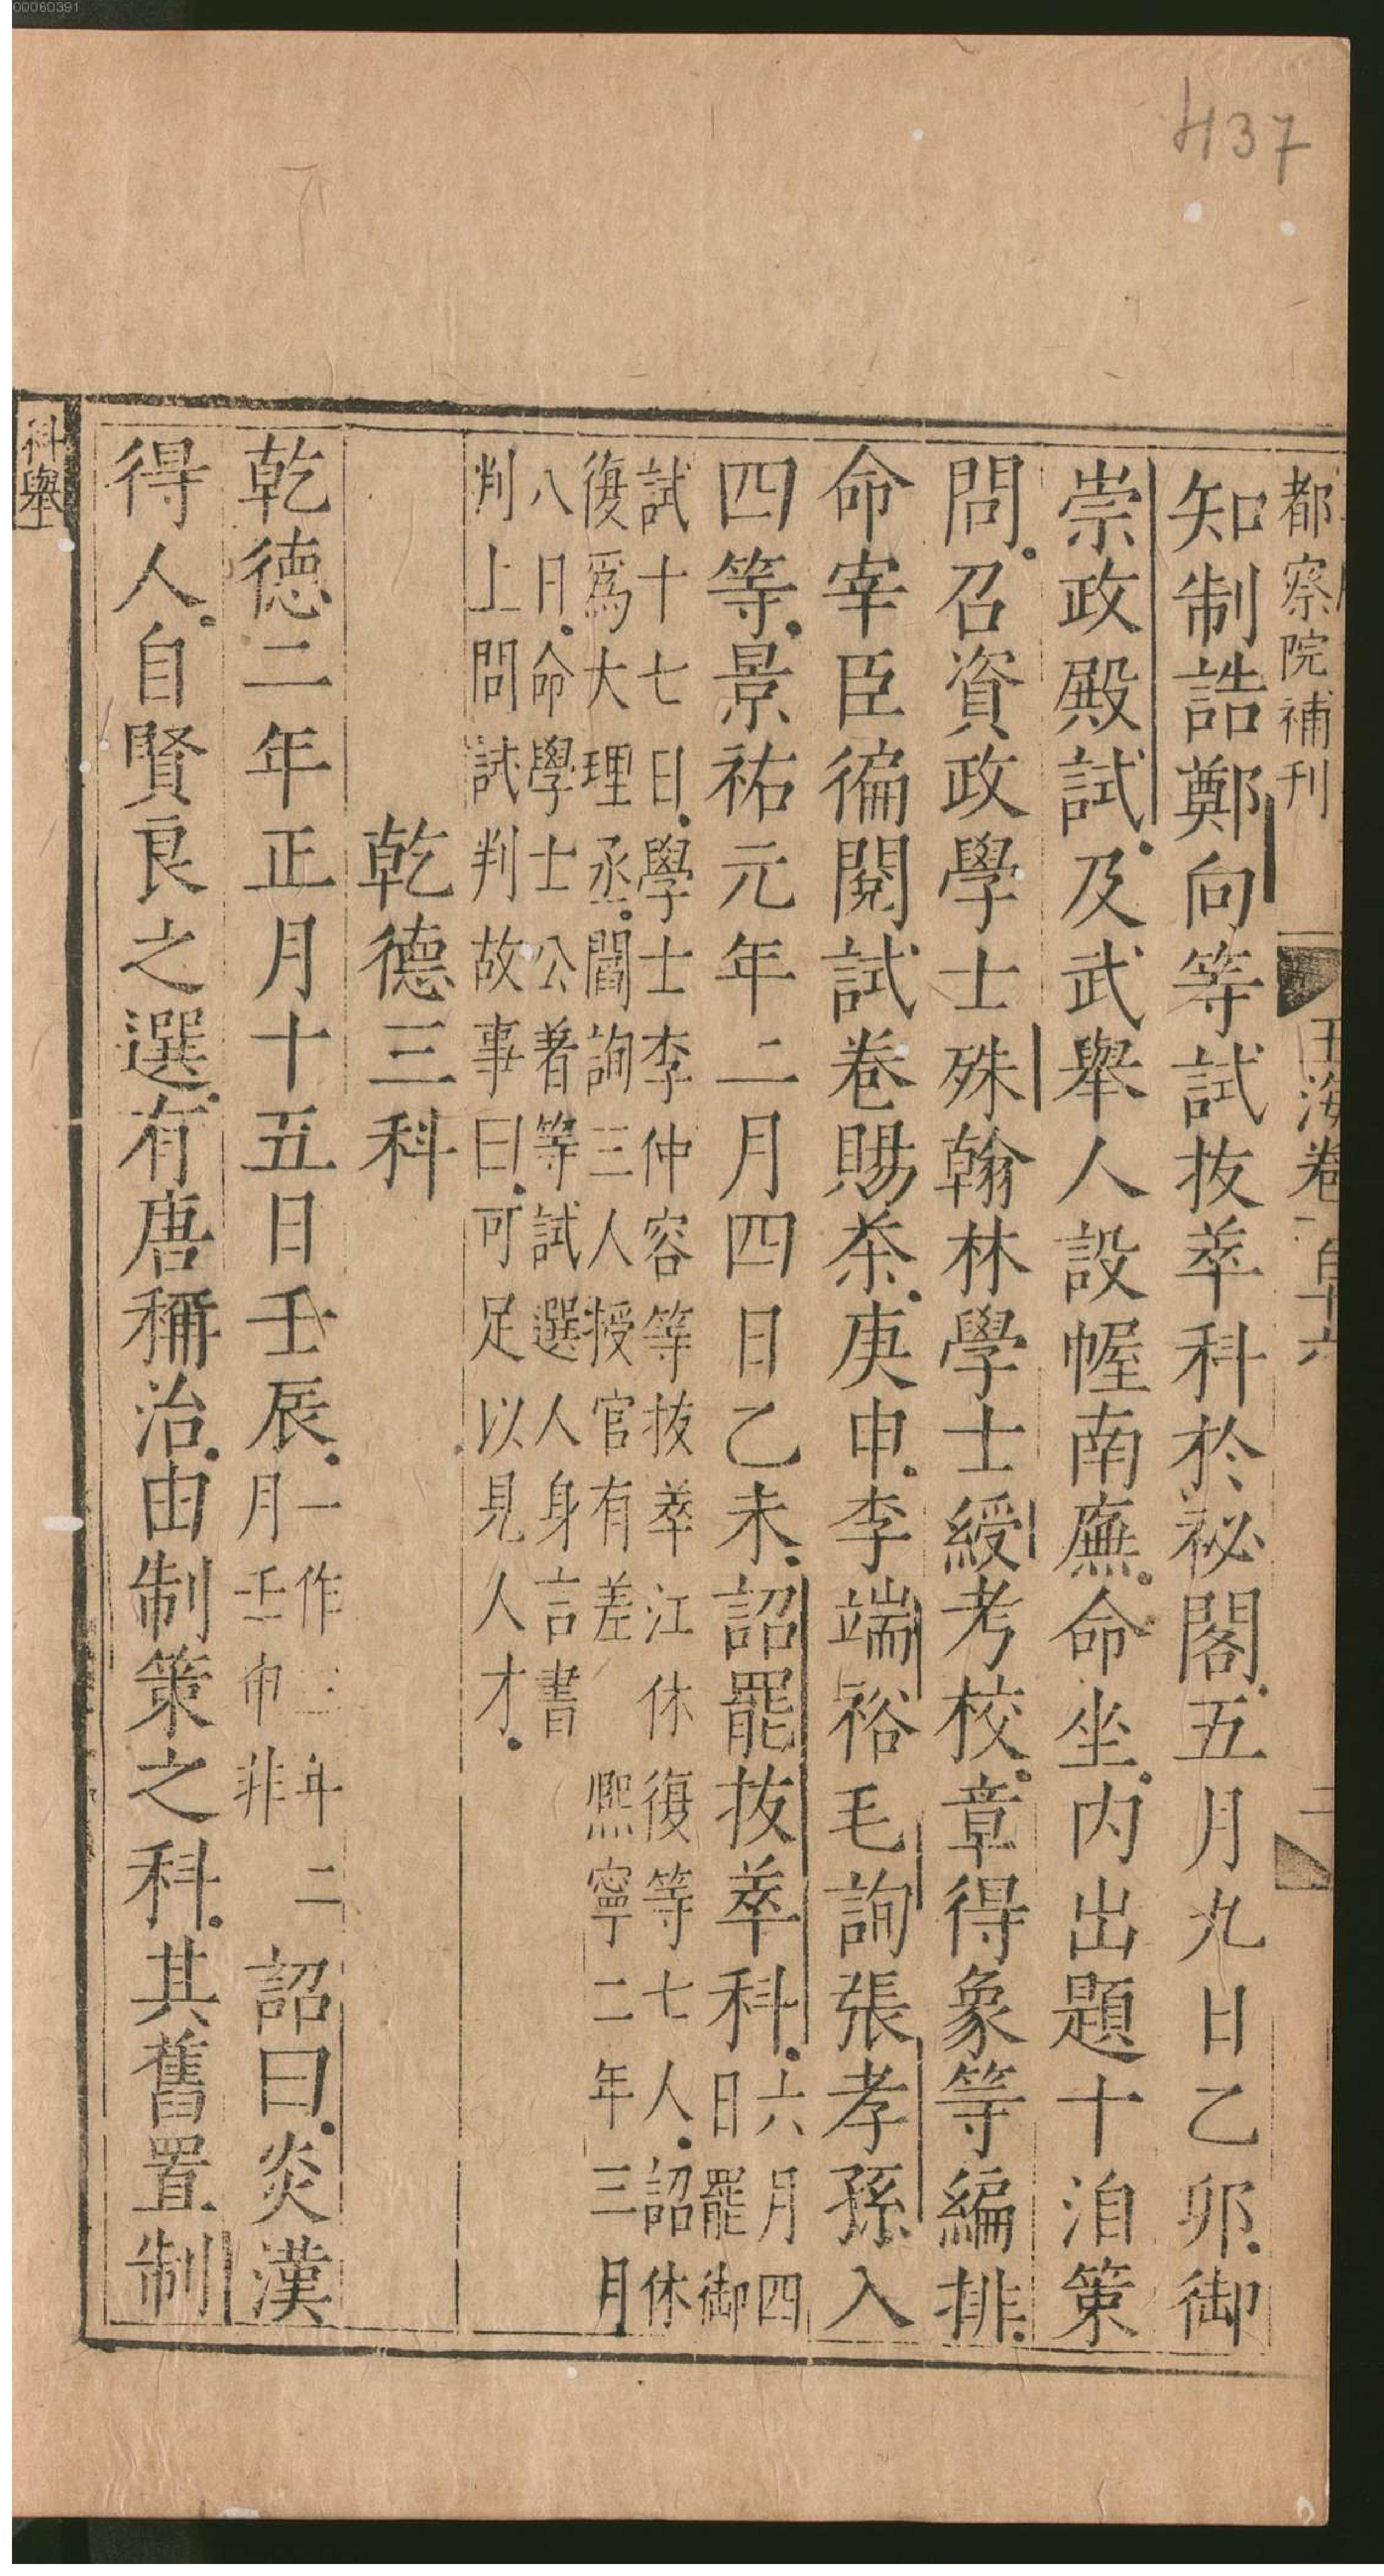 00060391
437
都察院補刊
玉海卷一百十六
二
知制誥鄭向等試拔萃科於祕閣五月九日乙卯御
崇政殿試及武舉人設幄南廡命坐內出題十洎策
問召資政學士殊翰林學士綬考校章得象等編排
命宰臣徧閱試卷賜茶庚申李端裕毛詢張孝孫入
四等景祐元年二月四日乙未詔罷拔萃科六月四
日罷御
試十七日學士李仲容等拔萃江休復等七人詔休
復爲大理丞閻詢三人授官有差熙寧二年三月
八日命學士公著等試選人身言書
判上問試判故事曰可足以見人才
乾德三科
乾德二年正月十五日壬辰一作三年二
月壬申非詔曰炎漢
得人自賢良之選有唐稱治由制策之科其舊置制
科舉